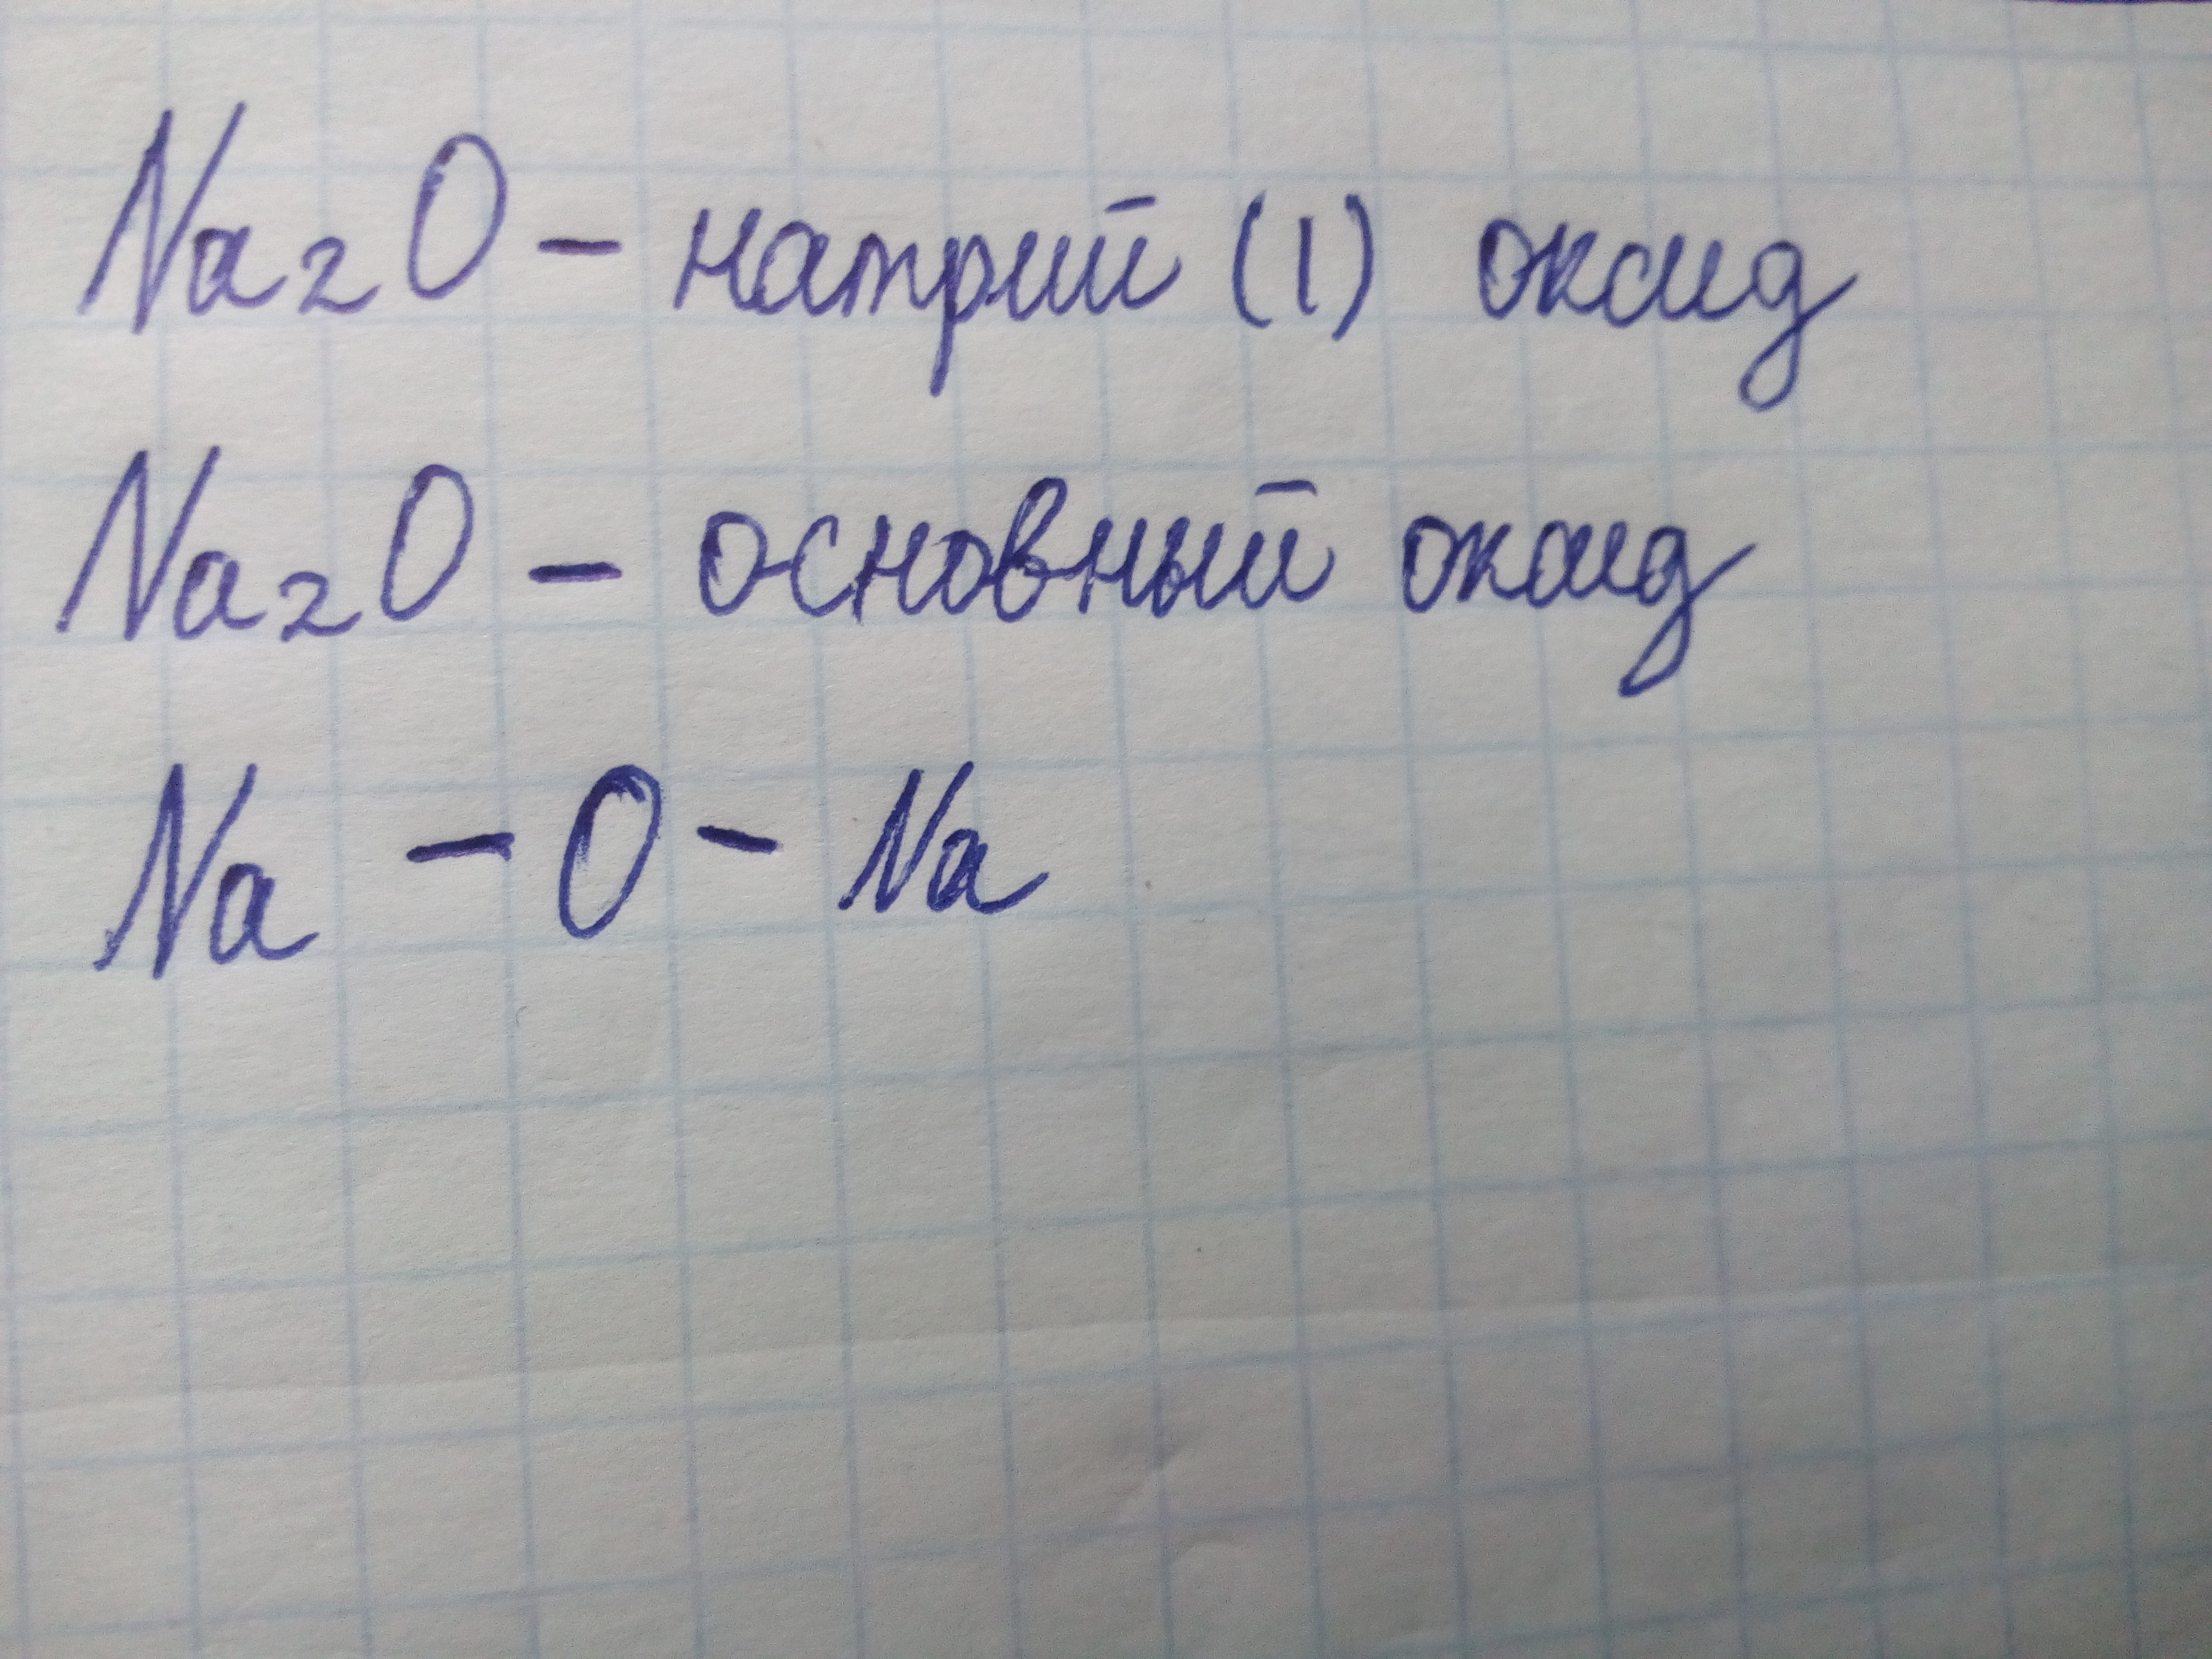 Na₂O - натрий (I) оксид
Na₂O - основный оксид
Na - O - Na